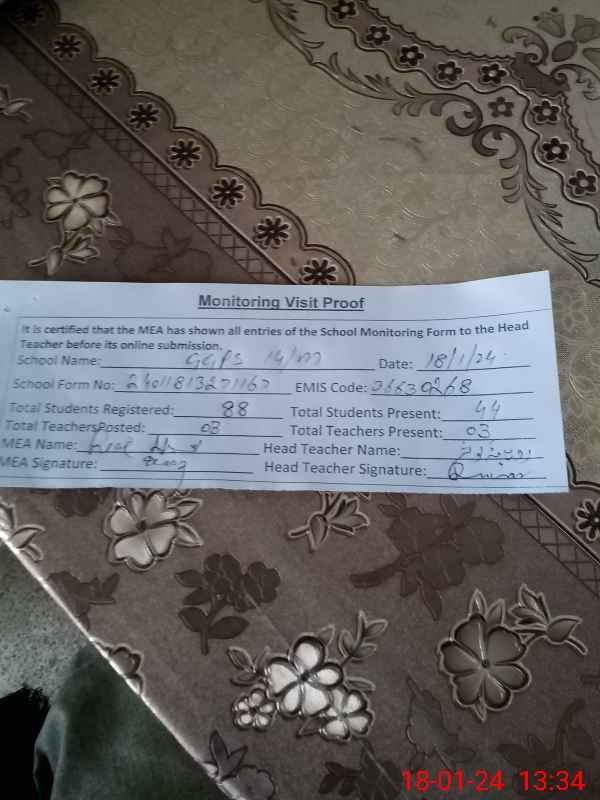 Monitoring Visit Proof
It is certified that the MEA has shown all entries of the School Monitoring Form to the Head
Teacher before its online submission.
School Name: GGPS 14/m Date: 18/1/24
School Form No: EMIS Code: 36630268
Total Students Registered: 88 Total Students Present: 44
Total TeachersPosted: 03 Total Teachers Present: 03
MEA Name: Head Teacher Name:
MEA Signature: Head Teacher Signature:
18-01-24 13:34